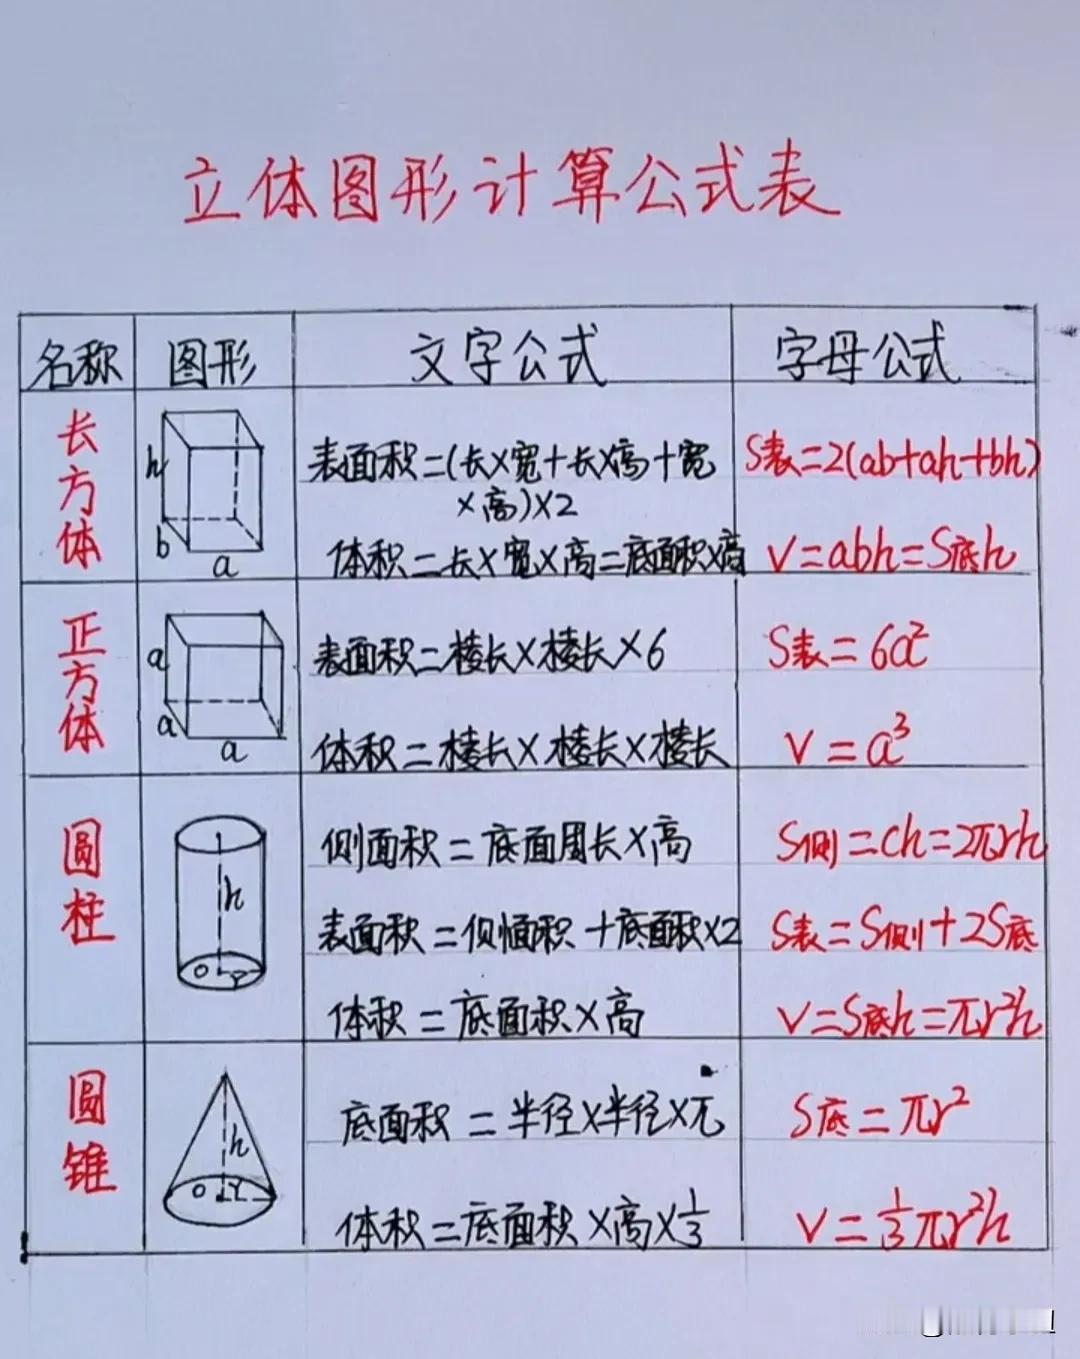 立体图形计算公式表
名称 图形 文字公式 字母公式
长方体
h
b
a
表面积=(长×宽+长×高+宽
×高)×2
S表=2(ab+ah+bh)
体积=长×宽×高=底面积×高
V=abh=S底h
正方体
a
a
a
表面积=棱长×棱长×6
S表=6a²
体积=棱长×棱长×棱长
V=a³
圆柱
h
O r
侧面积=底面周长×高
S侧=ch=2πrh
表面积=侧面积+底面积×2
S表=S侧+2S底
体积=底面积×高
V=S底h=πr²h
圆锥
h
O r
底面积=半径×半径×π
S底=πr²
体积=底面积×高×1/3
V=1/3πr²h